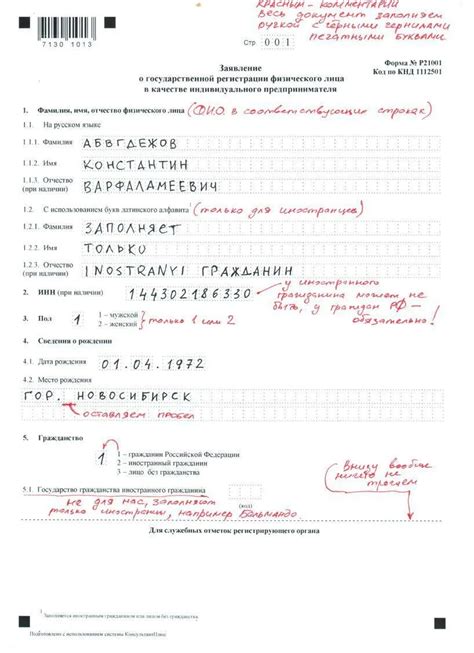 КРАСНЫМ - КОММЕНТАРИИ
Весь документ заполняем
ручкой с чёрными чернилами
печатными буквами
7130 1013
Стр. 001
Форма № Р21001
Код по КНД 1112501
Заявление
о государственной регистрации физического лица
в качестве индивидуального предпринимателя
1. Фамилия, имя, отчество физического лица (Ф.И.О. в соответствующих строках)
1.1. На русском языке
1.1.1. Фамилия АБВГДЕЖОВ
1.1.2. Имя КОНСТАНТИН
1.1.3. Отчество
(при наличии) ВАРФАЛАМЕЕВИЧ
1.2. С использованием букв латинского алфавита¹ (только для иностранцев)
1.2.1. Фамилия ЗАПОЛНЯЕТ
1.2.2. Имя ТОЛЬКО
1.2.3. Отчество
(при наличии) INOSTRANYI ГРАЖДАНИН
2. ИНН (при наличии) 144302186330
у иностранного
гражданина может не
быть, у граждан РФ -
обязательно!
3. Пол 1 1 – мужской
2 – женский только 1 или 2
4. Сведения о рождении
4.1. Дата рождения 01.04.1972
4.2. Место рождения
ГОР. НОВОСИБИРСК
оставляем пробел
5. Гражданство
1 1 – гражданин Российской Федерации
2 – иностранный гражданин
3 – лицо без гражданства
Внизу вообще
ничего не
трогаем
5.1. Государство гражданства иностранного гражданина
не для нас, заполняют
только иностранцы, например Бальмандо
(код)
Для служебных отметок регистрирующего органа
¹ Заполняется иностранным гражданином или лицом без гражданства.
Подготовлено с использованием системы КонсультантПлюс